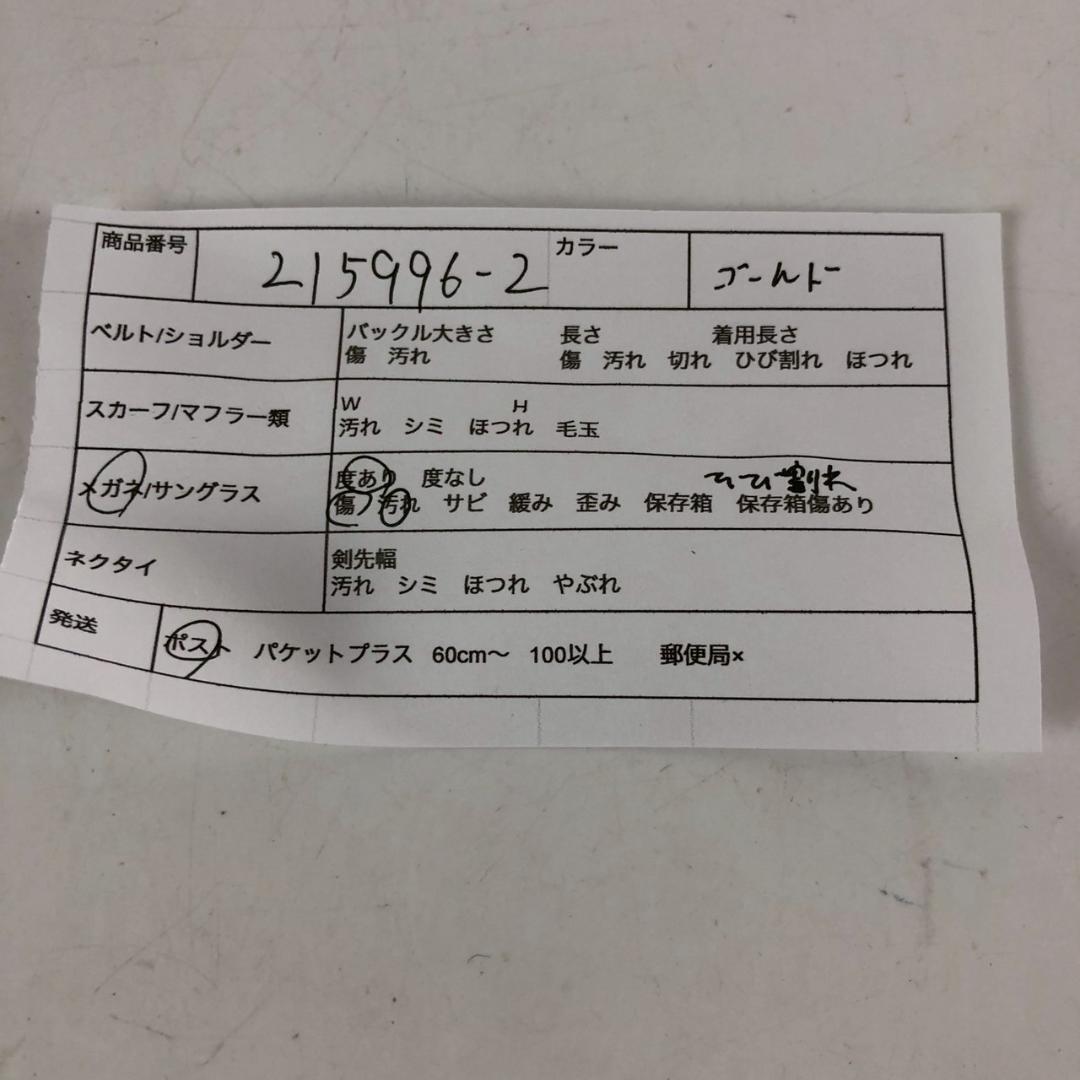 商品番号 215996-2 カラー ゴールド
ベルト/ショルダー バックル大きさ 長さ 着用長さ
傷 汚れ 傷 汚れ 切れ ひび割れ ほつれ
スカーフ/マフラー類 W H
汚れ シミ ほつれ 毛玉
メガネ/サングラス 度あり 度なし ひび割れ
傷 汚れ サビ 緩み 歪み 保存箱 保存箱傷あり
ネクタイ 剣先幅
汚れ シミ ほつれ やぶれ
発送 ポスト パケットプラス 60cm〜 100以上 郵便局×